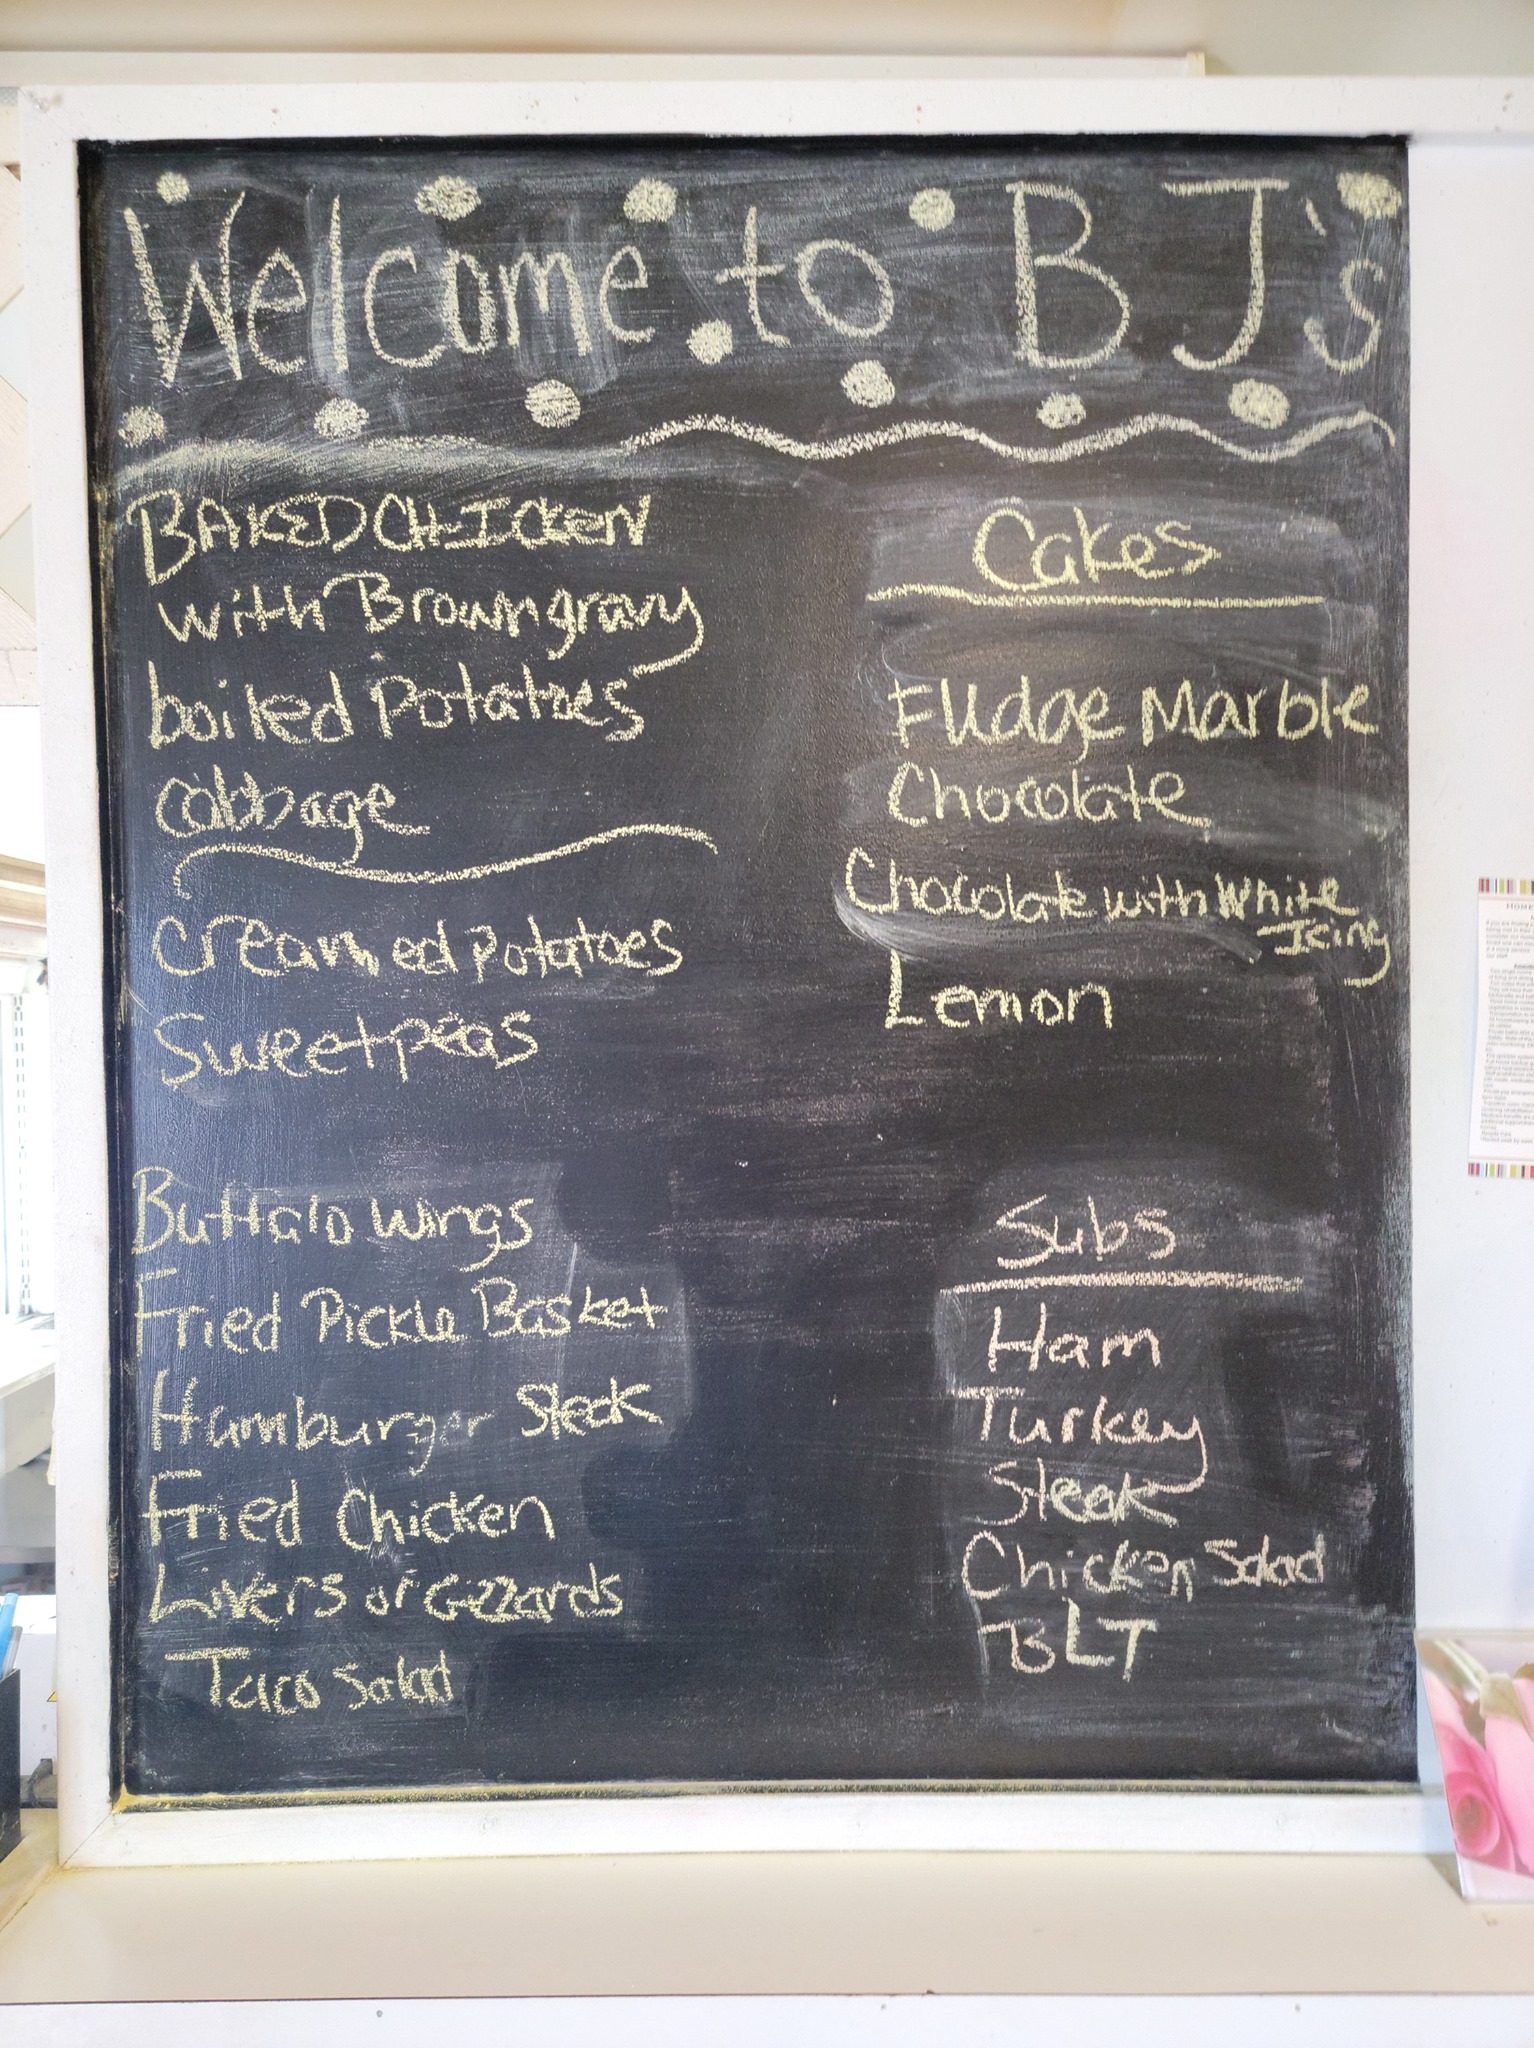 Welcome to BJ's
BAKED CHICKEN
with Brown gravy
boiled Potatoes
cabbage
Creamed potatoes
Sweet peas
Buffalo Wings
Fried Pickle Basket
Hamburger Steak
Fried Chicken
Livers or Gizzards
Taco Salad
Cakes
Fudge Marble
Chocolate
Chocolate with White
Icing
Lemon
Subs
Ham
Turkey
Steak
Chicken Salad
BLT
HOME